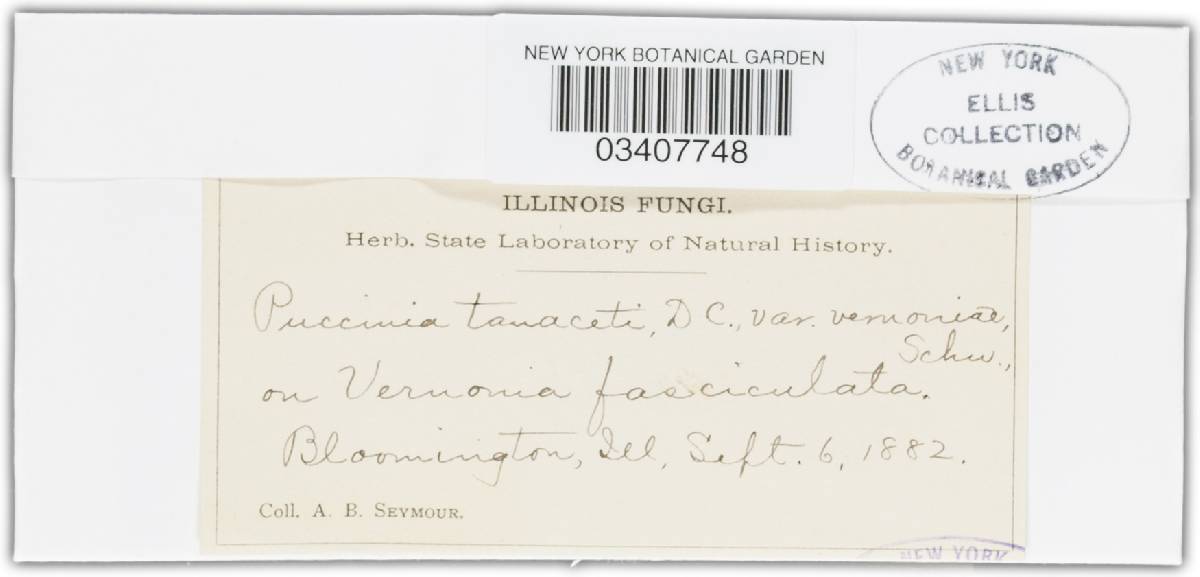 NEW YORK BOTANICAL GARDEN
03407748
NEW YORK
ELLIS
COLLECTION
BOTANICAL GARDEN
ILLINOIS FUNGI.
Herb. State Laboratory of Natural History.
Puccinia tanaceti, DC., var. vernoniae,
Schw.,
on Vernonia fasciculata.
Bloomington, Ill, Sept. 6, 1882.
Coll. A. B. SEYMOUR.
NEW YORK